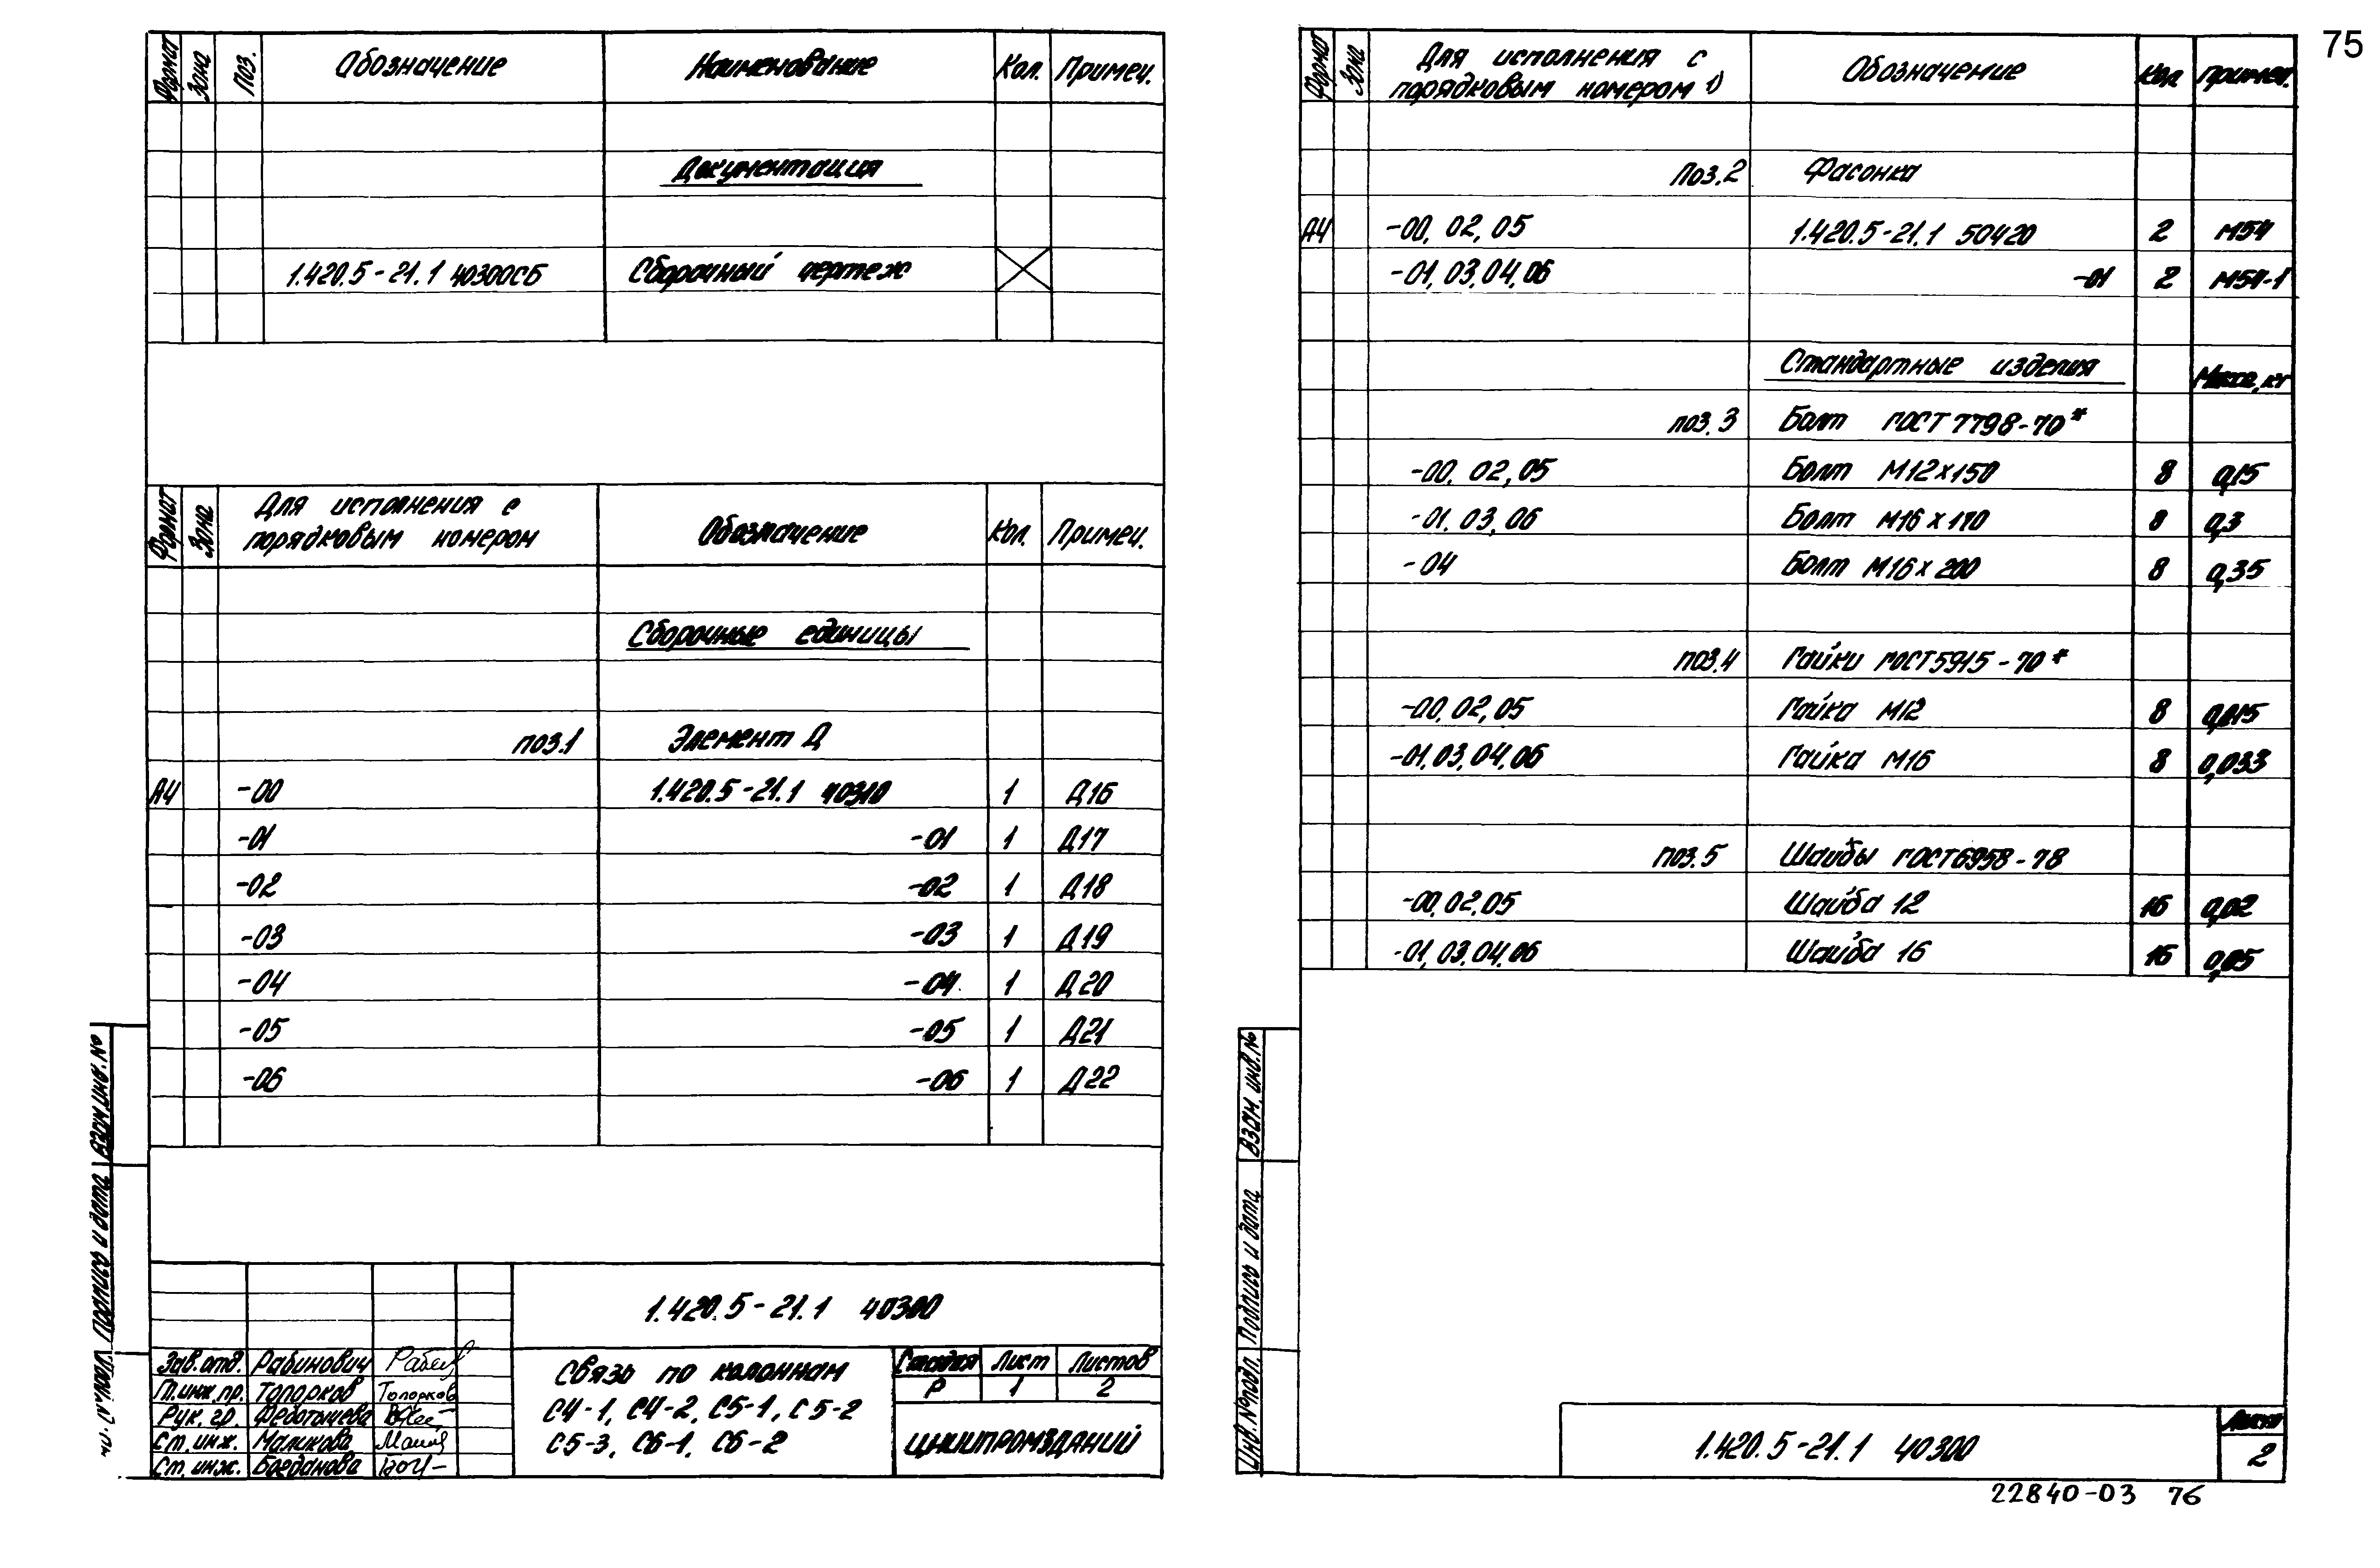 75
Формат Зона Поз. Обозначение Наименование Кол. Примеч.
Документация
1.420.5-21.1 40300СБ Сборочный чертеж
Формат Зона Для исполнения с порядковым номером Обозначение Кол. Примеч.
Сборочные единицы
поз.1 Элемент Д
А4 -00 1.420.5-21.1 40310 1 Д16
-01 -01 1 Д17
-02 -02 1 Д18
-03 -03 1 Д19
-04 -04 1 Д20
-05 -05 1 Д21
-06 -06 1 Д22
Взам.инв.№
Подпись и дата
1.420.5-21.1 40300
Зав.отд. Рабинович
Гл.инж.пр. Топорков Топорков
Рук.гр.
Ст.инж. Маликова
Ст.инж. Богданова
Связь по колоннам
С4-1, С4-2, С5-1, С5-2
С5-3, С6-1, С6-2
Стадия Лист Листов
Р 1 2
ЦНИИПРОМЗДАНИЙ
Формат Зона Для исполнения с порядковым номером 1) Обозначение Кол. Примеч.
Поз.2 Фасонка
А4 -00, 02, 05 1.420.5-21.1 50420 2 М54
-01, 03, 04, 06 -01 2 М54-1
Стандартные изделия Масса, кг
поз.3 Болт ГОСТ 7798-70*
-00, 02, 05 Болт М12х150 8 0,15
-01, 03, 06 Болт М16х170 8 0,3
-04 Болт М16х200 8 0,35
поз.4 Гайки ГОСТ5915-70*
-00, 02, 05 Гайка М12 8 0,015
-01, 03, 04, 06 Гайка М16 8 0,033
поз.5 Шайбы ГОСТ6958-78
-00, 02, 05 Шайба 12 16 0,02
-01, 03, 04, 06 Шайба 16 16 0,05
Взам. инв.№
Подпись и дата
Инв.№подл.
1.420.5-21.1 40300
Лист
2
22840-03 76